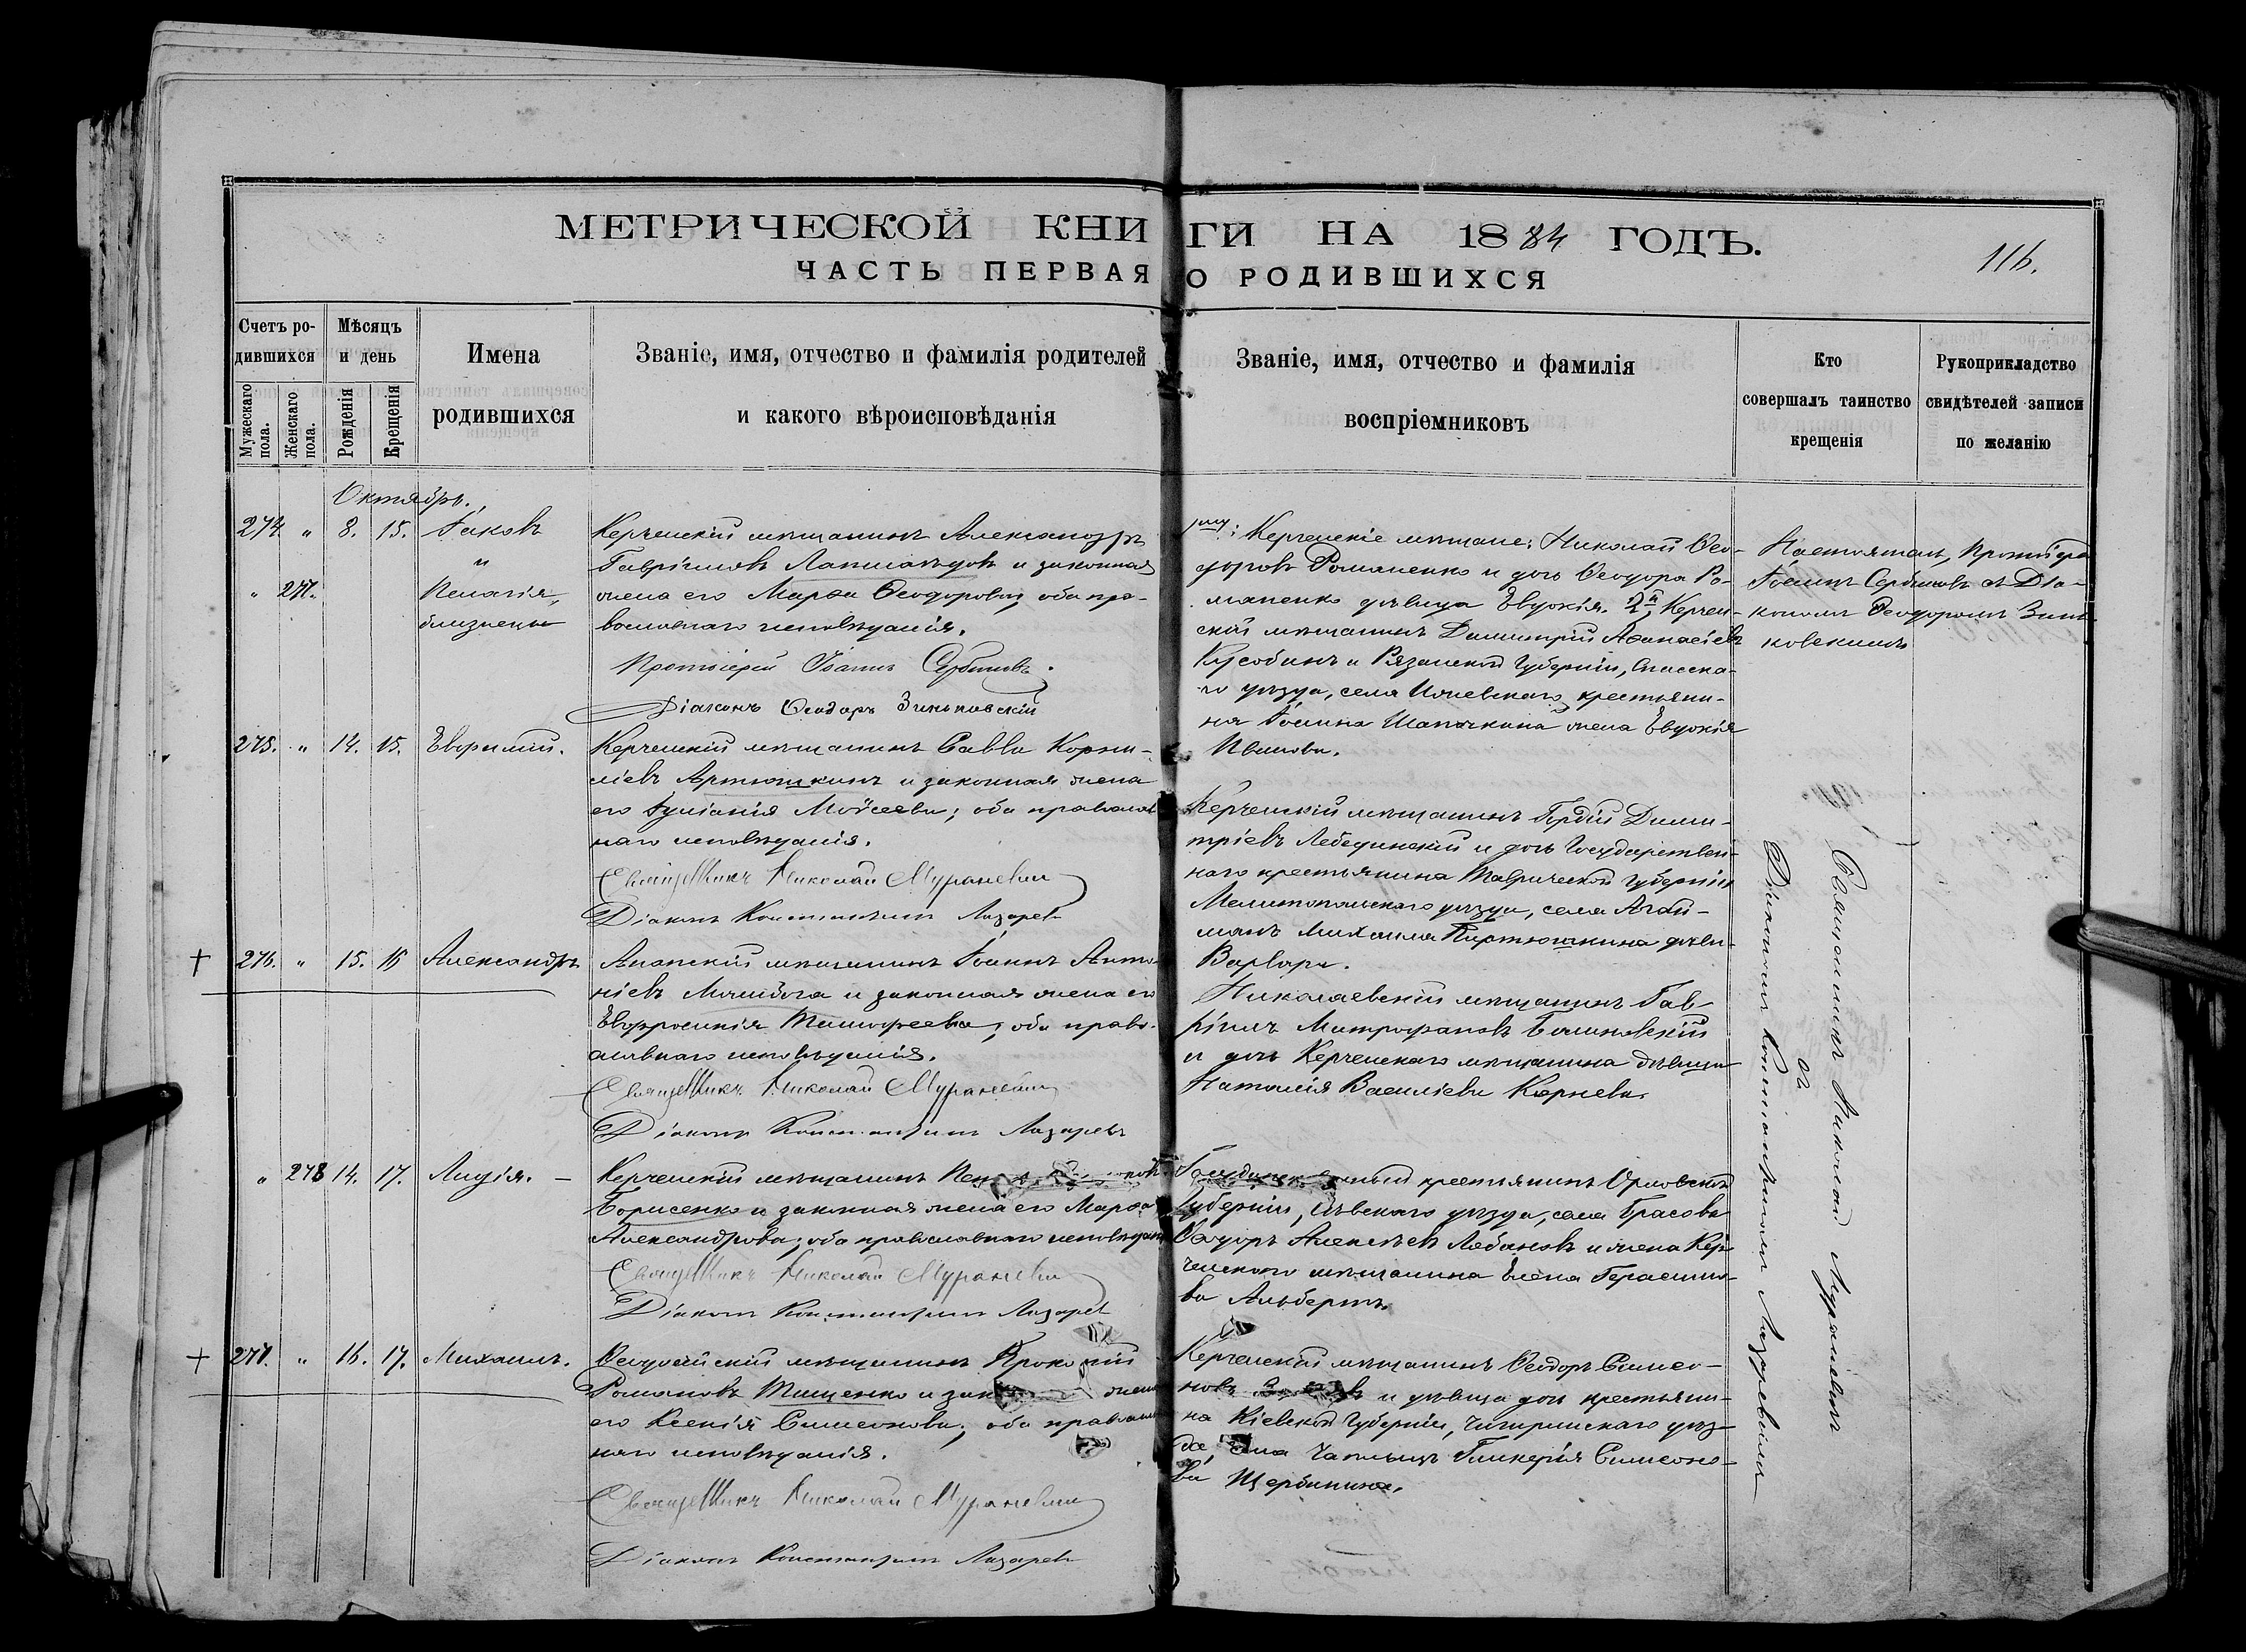 МЕТРИЧЕСКОЙ КНИГИ НА 1884 ГОДЪ.
116.
ЧАСТЬ ПЕРВАЯ О РОДИВШИХСЯ
Счетъ родившихся
Мужескаго пола.
Женскаго пола.
Мѣсяцъ и день
Рожденія
Крещенія
Имена родившихся
Званіе, имя, отчество и фамилія родителей
и какого вѣроисповѣданія
Званіе, имя, отчество и фамилія
воспріемниковъ
Кто
совершалъ таинство
крещенія
Рукоприкладство
свидѣтелей записи
по желанію
Октябрь.
274. " 8. 15. Іаковъ
и
" 277. Пелагія,
близнецы
Керченскій мѣщанинъ Александръ
Гавріиловъ и законная
жена его Марѳа Ѳеодорова, оба пра-
вославнаго исповѣданія.
Протоіерей Іоаннъ Сербиновъ.
Діаконъ Ѳеодоръ Зиньковскій
Керченскіе мѣщане: Николай Ѳео-
доровъ Романенко и дочь Ѳеодора Ро-
маненко дѣвица Евдокія. 2й, Керчен-
скій мѣщанинъ Димитрій Аѳанасіевъ
и Рязанской Губерніи, Спасска-
го уѣзда, села крестьяни-
на Іоанна жена Евдокія
Иванова.
Настоятель, Протоіерей
Іоаннъ Сербиновъ съ Діа-
кономъ Ѳеодоромъ Зинь-
ковскимъ
275. " 14. 15. Евѳимій.
Керченскій мѣщанинъ Савва Корни-
ліевъ Артюшкинъ и законная жена
его Іуліанія Мойсеева; оба православ-
наго исповѣданія.
Священникъ Николай Мураневич
Діаконъ Константинъ Лазарев
Керченскій мѣщанинъ Гордій Дими-
тріевъ Лебединскій и дочь Государствен-
наго крестьянина Таврической Губерніи
Мелитопольскаго уѣзда, села Агай-
манъ Михаила дѣви-
Варвара.
276. " 15. 16 Александръ
Анапскій мѣщанинъ Іоаннъ Анто-
ніевъ и законная жена его
Евфросинія Тимоѳеева; оба право-
славнаго исповѣданія.
Священникъ Николай Мураневич
Діаконъ Константинъ Лазаревъ
Николаевскій мѣщанинъ Гав-
ріилъ Митрофановъ
и дочь Керченскаго мѣщанина дѣвица
Наталія Василіева Корнева.
" 278 14. 17. Лидія. —
Керченскій мѣщанинъ
Борисенко и законная жена его Марѳа
Александрова; оба православнаго исповѣдан
Священникъ Николай Мураневич
Діаконъ Константинъ Лазарев
крестьянинъ Орловской
Губерніи, Сѣвскаго уѣзда, села Брасова
Ѳеодоръ Алексѣевъ Лобановъ и жена Кер-
ченскаго мѣщанина Елена Герасимо-
ва Альбертъ.
277. " 16. 17. Михаилъ.
Ѳеодосійскій мѣщанинъ Прокопій
Романовъ Тищенко и жена
его Ксенія Симеонова; оба православ
наго исповѣданія.
Священникъ Николай Мураневич
Діаконъ Константинъ Лазарев
Керченскій мѣщанинъ Ѳеодоръ Симео-
новъ и дѣвица дочь крестьяни-
на Кіевской Губерніи, Чигиринскаго уѣз-
да, села Гликерія Симеоно-
ва Щербинина.
Священникъ Николай Мураневичъ
съ
Діакономъ Константиномъ Лазаревымъ